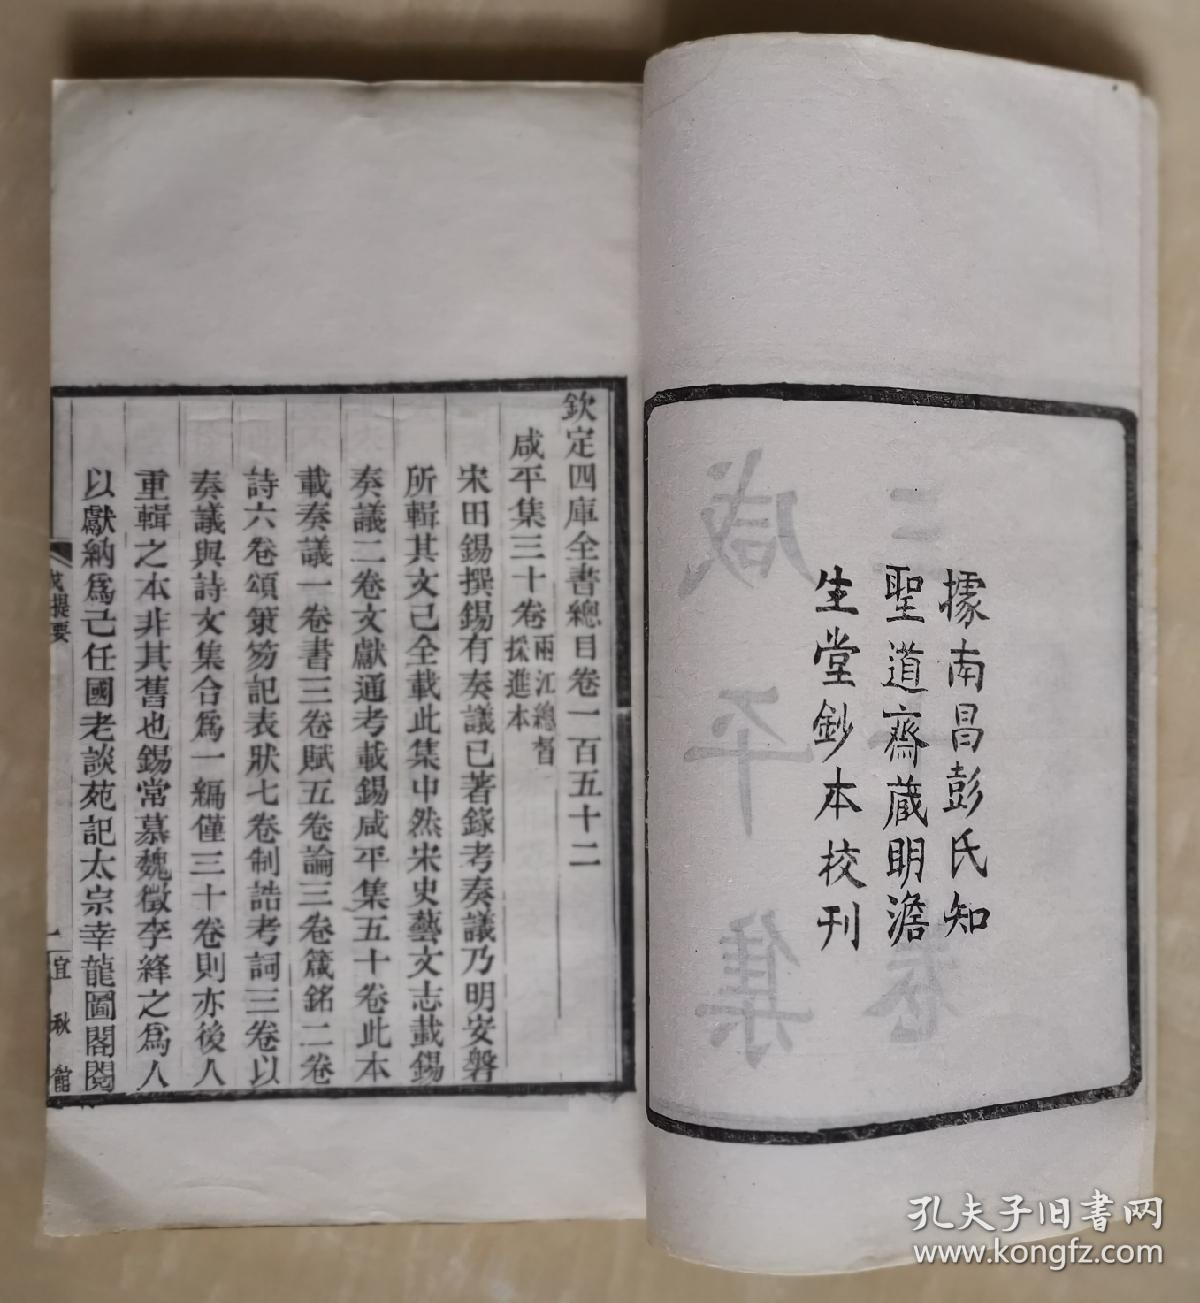 據南昌彭氏知
聖道齋蔵明澹
生堂鈔本校刊
欽定四庫全書總目卷一百五十二
咸平集三十卷兩江總督採進本
宋田錫撰錫有奏議已著錄考奏議乃明安磐
所輯其文已全載此集中然宋史藝文志載錫
奏議二卷文獻通考載錫咸平集五十卷此本
載奏議一卷書三卷賦五卷論三卷箴銘二卷
詩六卷頌策笏記表狀七卷制誥考詞三卷以
奏議與詩文集合爲一編僅三十卷則亦後人
重輯之本非其舊也錫常慕魏徵李絳之爲人
以獻納爲己任國老談苑記太宗幸龍圖閣閱
咸提要
一
宜秋館
咸平集
三
卷
孔夫子旧书网
www.kongfz.com